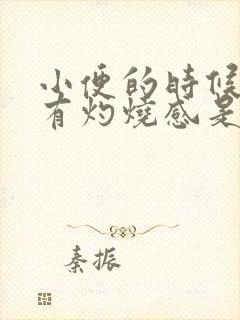 小便的時候
有灼燒感是
秦振